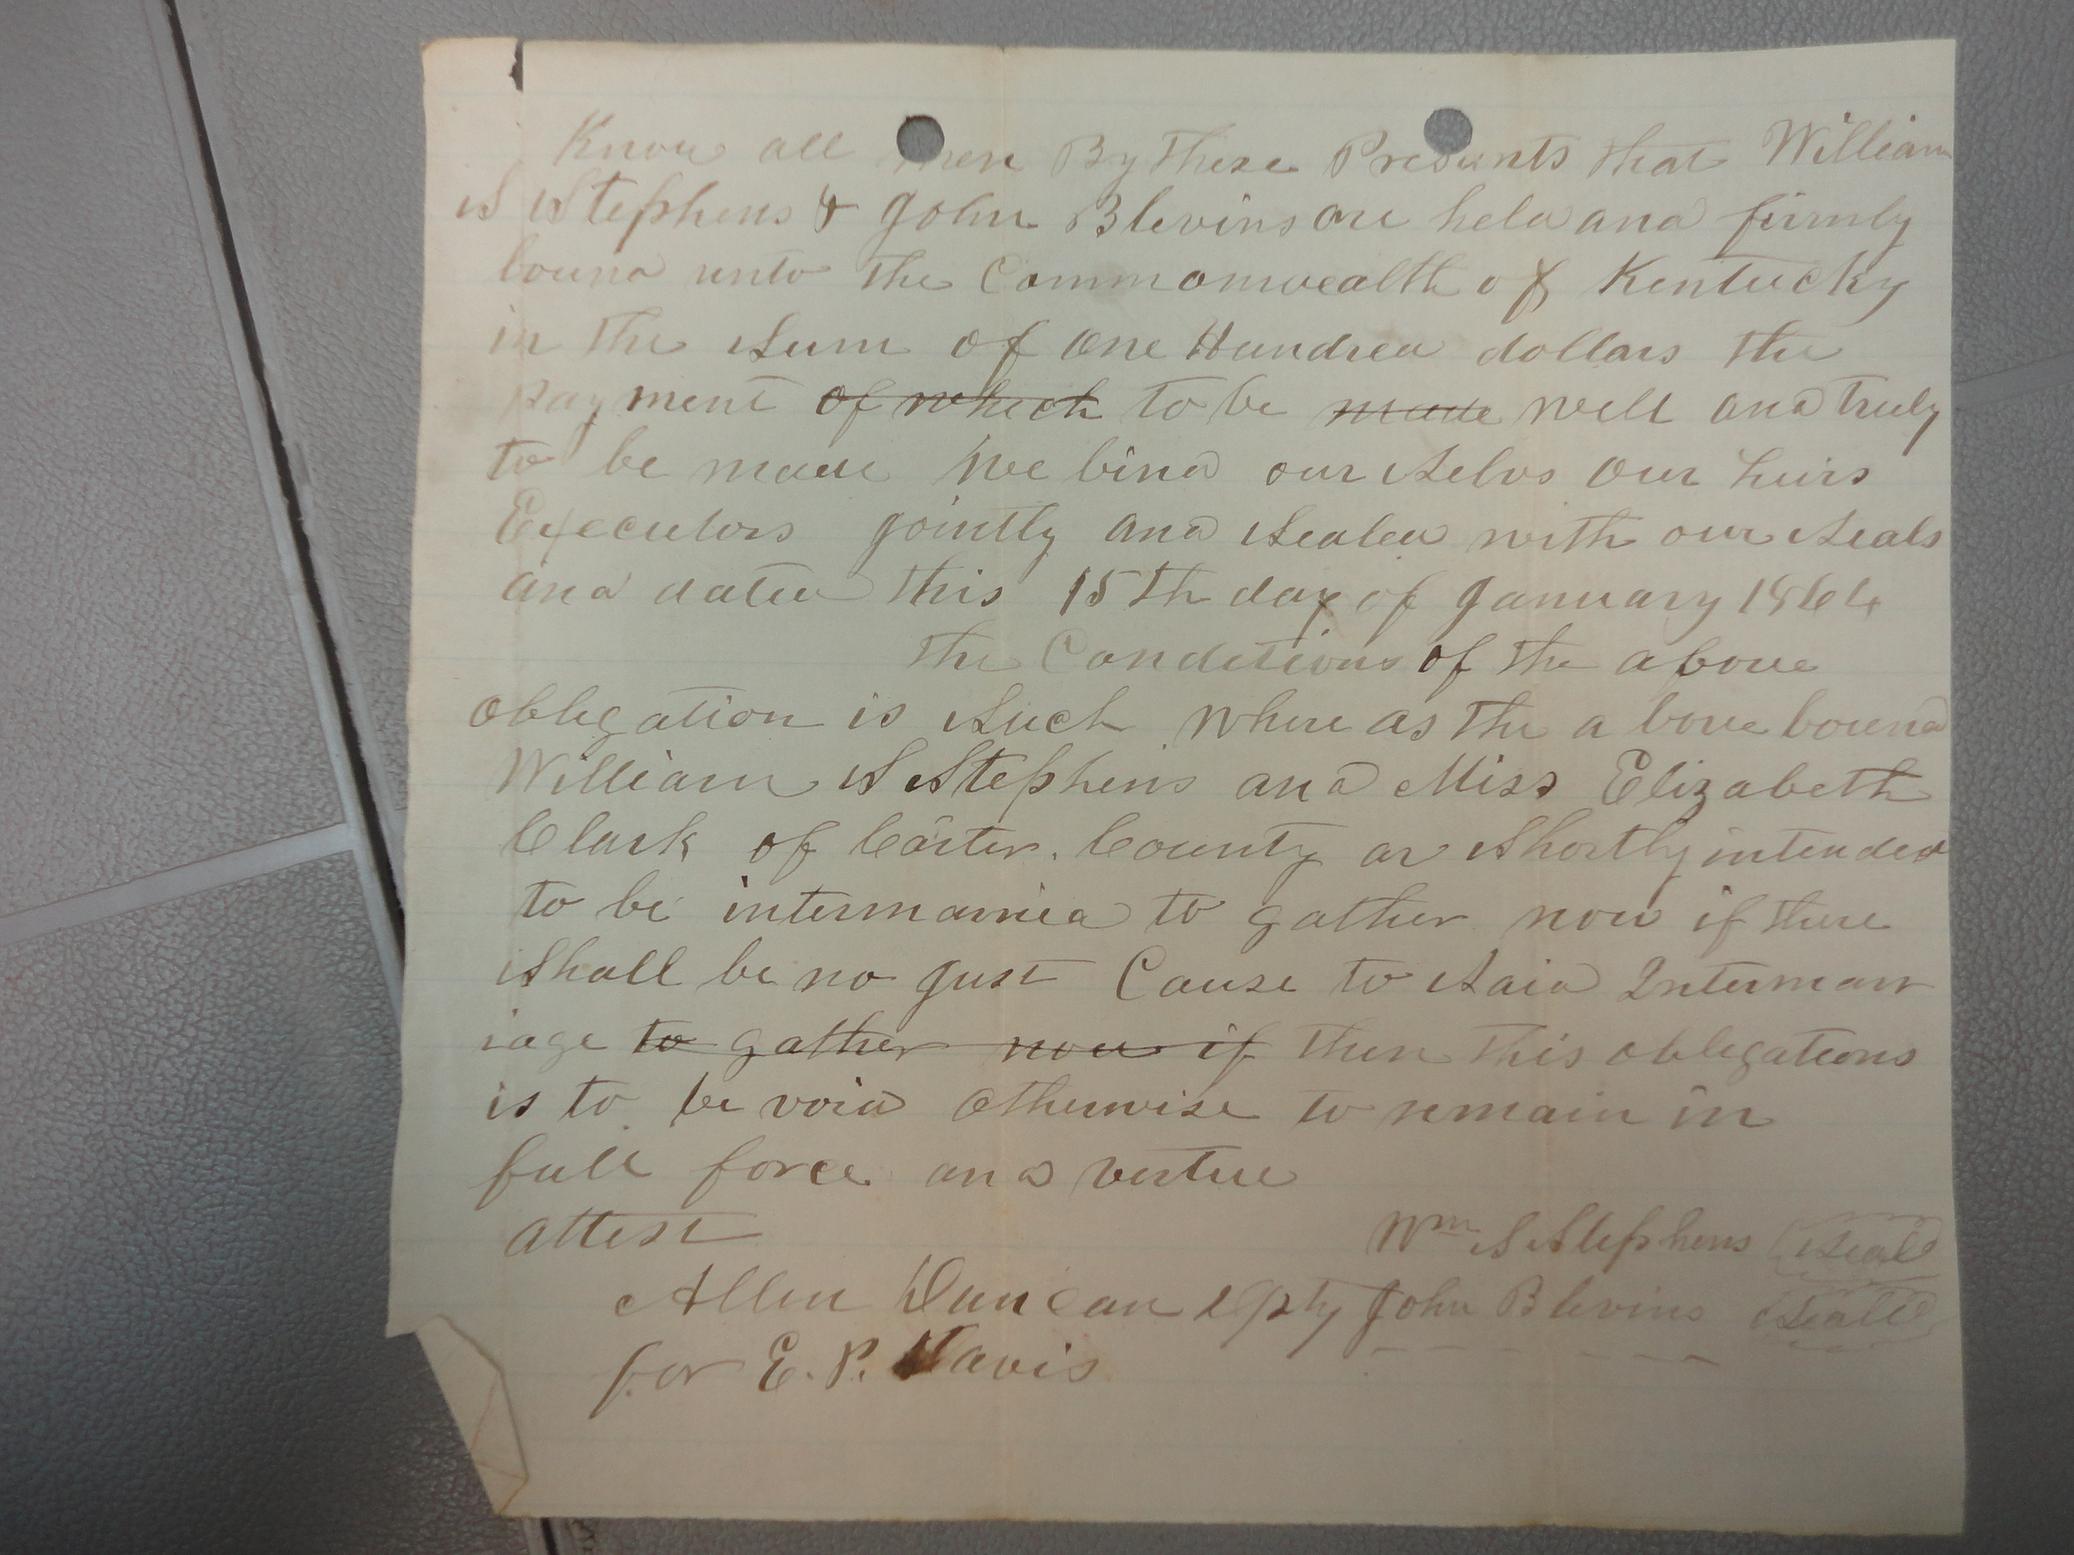 Know all men By these Presents that William
S Stephens & John Blevins are held and firmly
bound unto the Commonwealth of Kentucky
in the Sum of one Hundred dollars the
payment of which to be made well and truly
to be made we bind our Selvs our heirs
Executors jointly and Sealed with our Seals
and dated this 15th day of January 1864
the Conditions of the above
obligation is Such where as the a bove bound
William S Stephens and Miss Elizabeth
Clark of Carter County ar Shortly intended
to be intermarried to gather now if there
Shall be no just Cause to Said Intermarr
iage to gather now if then this obligations
is to be void otherwise to remain in
full force and vertue
attest Wm S Stephens Seal
Allen Duncan dpty John Blevins Seal
for E. P. Davis